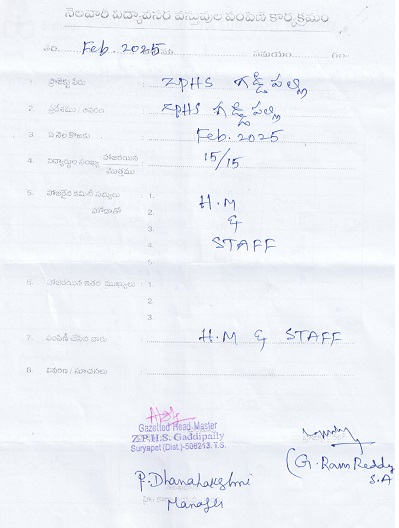 నెలవారి విద్యావసర వస్తువుల పంపిణి కార్యక్రమం
Feb. 2025 సమయం గం
1. ప్రాజెక్టు పేరు : ZPHS గడ్డిపల్లి
2. ప్రదేశము / వివరం : ZPHS గడ్డిపల్లి
3. ఏ నెల కొరకు : Feb. 2025
4. విద్యార్థుల సంఖ్య హాజరయిన మొత్తము : 15/15
5. హాజరైన కమిటీ సభ్యులు : 1. H.M
హోదాతో 2. &
3. STAFF
4.
5.
6. హాజరయిన ఇతర ముఖ్యులు : 1.
2.
3.
7. పంపిణీ చేసిన వారు : H.M & STAFF
8. వివరణ / సూచనలు :
Gazetted Head Master
Z.P.H.S. Gaddipally
Suryapet (Dist.)-508213. T.S.
P. Dhanalakshmi
Manager
(G. Ram Reddy
S.A